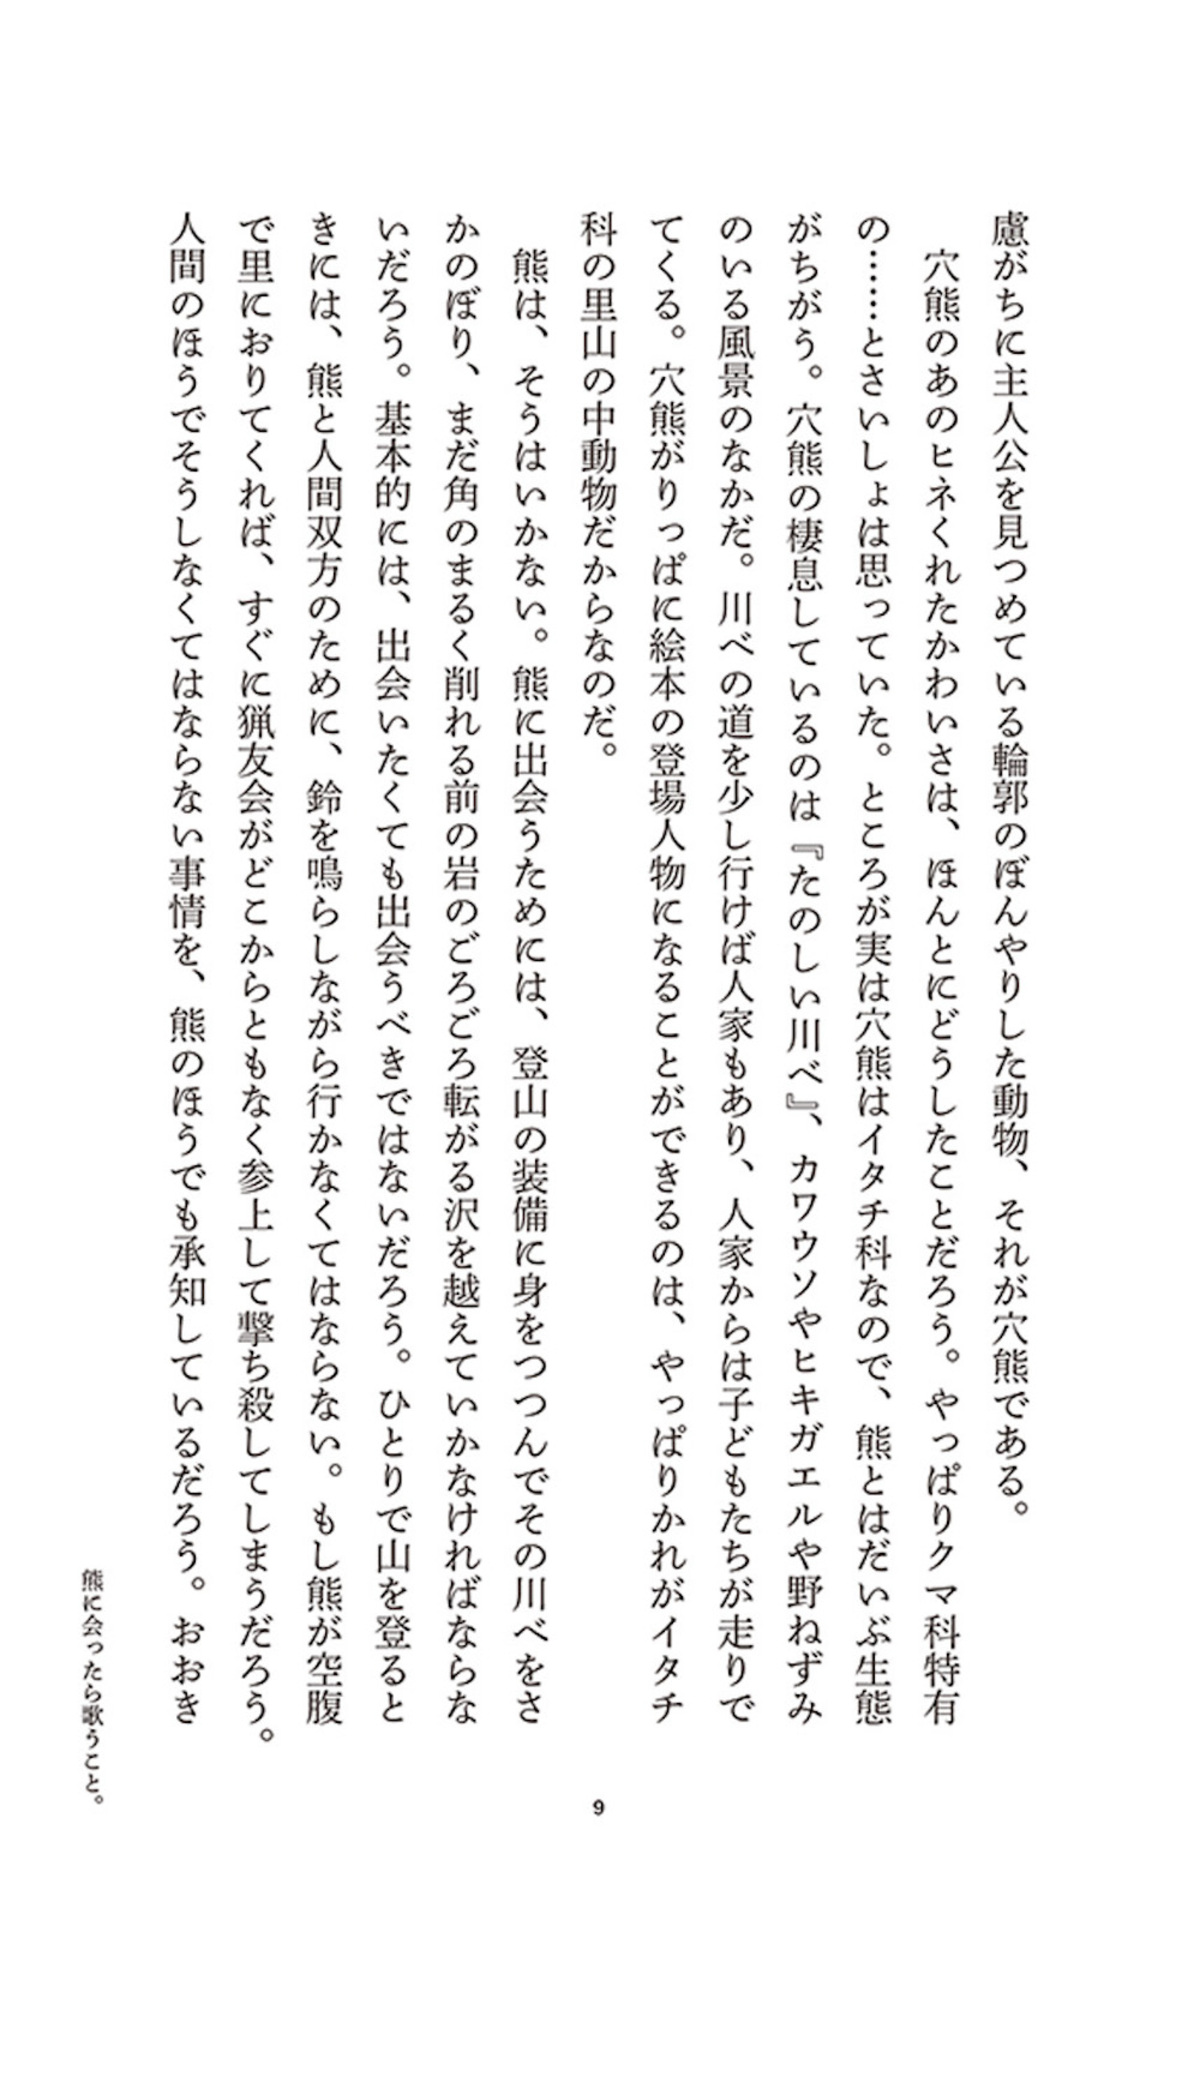 慮がちに主人公を見つめている輪郭のぼんやりした動物、それが穴熊である。
　穴熊のあのヒネくれたかわいさは、ほんとにどうしたことだろう。やっぱりクマ科特有
の……とさいしょは思っていた。ところが実は穴熊はイタチ科なので、熊とはだいぶ生態
がちがう。穴熊の棲息しているのは『たのしい川べ』、カワウソやヒキガエルや野ねずみ
のいる風景のなかだ。川べの道を少し行けば人家もあり、人家からは子どもたちが走りで
てくる。穴熊がりっぱに絵本の登場人物になることができるのは、やっぱりかれがイタチ
科の里山の中動物だからなのだ。
　熊は、そうはいかない。熊に出会うためには、登山の装備に身をつつんでその川べをさ
かのぼり、まだ角のまるく削れる前の岩のごろごろ転がる沢を越えていかなければならな
いだろう。基本的には、出会いたくても出会うべきではないだろう。ひとりで山を登ると
きには、熊と人間双方のために、鈴を鳴らしながら行かなくてはならない。もし熊が空腹
で里におりてくれば、すぐに猟友会がどこからともなく参上して撃ち殺してしまうだろう。
人間のほうでそうしなくてはならない事情を、熊のほうでも承知しているだろう。おおき
熊に会ったら歌うこと。
9